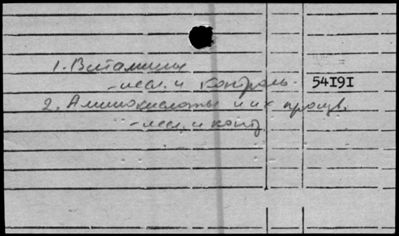 1. Витамины
- иссл. и контроль 54I9I
2. Аминокислоты и их произв.
- иссл. и контр.